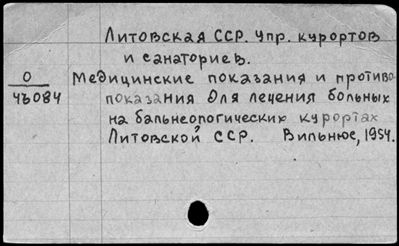 Литовская ССР. Упр. курортов
и санаториев.
О Медицинские показания и противо-
43084 показания для лечения больных
на бальнеологических курортах
Литовской ССР. Вильнюс, 1954.